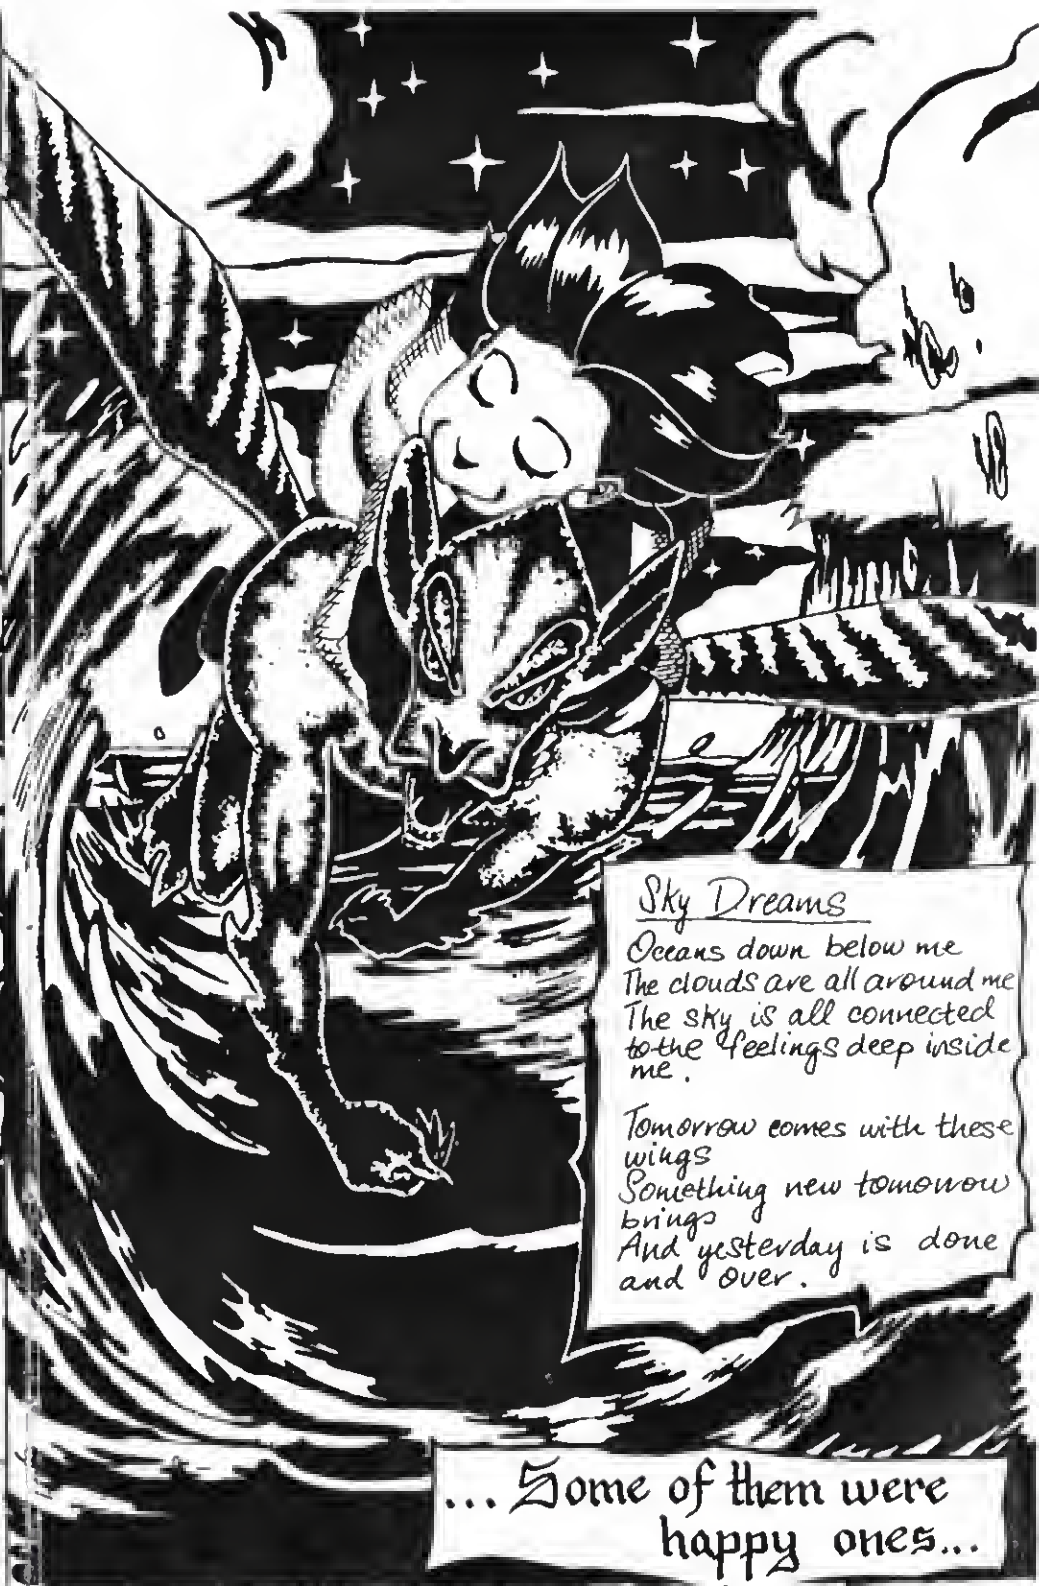 Sky Dreams
Oceans down below me
The clouds are all around me
The sky is all connected
to the feelings deep inside
me.
Tomorrow comes with these
wings
Something new tomorrow
brings
And yesterday is done
and over.
... Some of them were
happy ones...